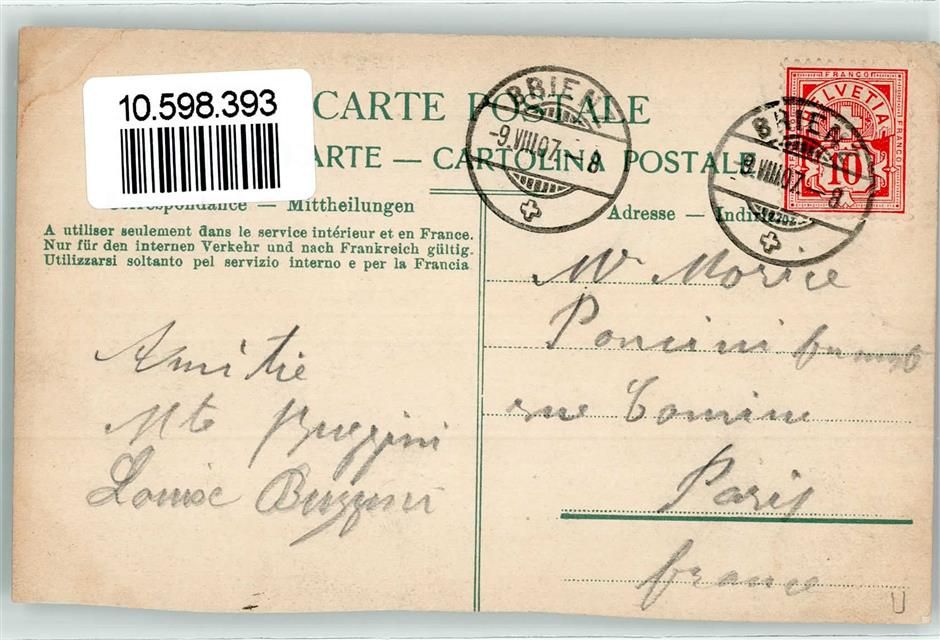 10.598.393
CARTE POSTALE
ARTE — CARTOLINA POSTALE
Correspondance — Mittheilungen
A utiliser seulement dans le service intérieur et en France.
Nur für den internen Verkehr und nach Frankreich gültig.
Utilizzarsi soltanto pel servizio interno e per la Francia
Amitié
Mte Buzzini
Louise Buzzini
BRIE
-9.VIII.07.-8
FRANCO
HELVETIA
FRANCO
10
BRIE
9.VIII.07.-8
Adresse — Indi
Mr Morice
Poncini
rue Comine
Paris
france
U